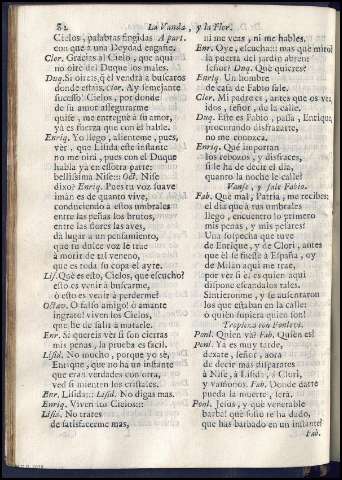 82 La Vanda, y la Flor.
Cielos, palabras fingidas A part.
con que a una Deydad engañe.
Clor. Gracias al Cielo, que aqui
no oirè del Duque los males.
Duq. Si oirèis, q̃ el vendrà a buscaros
donde estais. Clor. Ay semejante
sucesso! Cielos, por donde
de su amor assegurarme
quise, me entreguè a su amor,
ya es fuerça que con èl hable.
Enriq. Yo llego, alienteme, pues,
vèr, que Lisida este instante
no me oirà, pues con el Duque
habla yà en essotra parte:
bellissima Nise:: Oct. Nise
dixo? Enriq. Pues tu voz suave
imàn es de quanto vive,
conduciendo a estos umbrales
entre las peñas los brutos,
entre las flores las aves,
dà lugar a un pensamiento,
que tu dulce voz le trae
à morir de tal veneno,
que es toda su copa el ayre.
Lis. Què es esto, Cielos, que escucho?
esto es venir à buscarme,
ò esto es venir à perderme?
Octav. O falso amigo! ò amante
ingrato! viven los Cielos,
que he de salir à matarle.
Enr. Si quereis vèr si son ciertas
mis penas, la prueba es facil.
Lisid. No mucho, porque yo sè,
Enrique, que no ha un instante
que eran verdades con otra,
ved si mienten los cristales.
Enr. Lisida::: Lisid. No digas mas.
Enriq. Viven los Cielos:::
Lisid. No trates
de satisfacerme mas,
ni me veas, ni me hables.
Enr. Oye, escucha::: mas què miro!
la puerta del jardin abren:
señor? Duq. Què quieres?
Enriq. Un hombre
de casa de Fabio sale.
Clor. Mi padre es, antes que os vea,
idos, señor, de la calle.
Duq. Este es Fabio, passa, Enrique,
procurando disfrazarte,
no me conozca.
Enriq. Què importan
los rebozos, y disfraces,
si le ha de decir el dia,
quanto la noche le calle?
Vanse, y sale Fabio.
Fab. Què mal, Patria, me recibes;
el dia que à tus umbrales
llego, encuentro lo primero
mis penas, y mis pesares!
Una sospecha que tuve
de Enrique, y de Clori, antes
que èl se fuesse à España, oy
de Milàn aqui me trae,
por vèr si èl es quien aqui
dispone escandalos tales.
Sintieronme, y se ausentaron
los que estaban en la calle:
ò quien supiera quien son!
Tropieza con Ponlevi.
Ponl. Quien và? Fab. Quien es?
Ponl. Ya es muy tarde,
dexate, señor, aora
de decir mas disparates
à Nise, à Lisida, à Clori,
y vamonos. Fab. Donde darte
pueda la muerte, serà.
Ponl. Jesus, y què venerable
barba! què susto te ha dado,
que has barbado en un instante?
Fab.